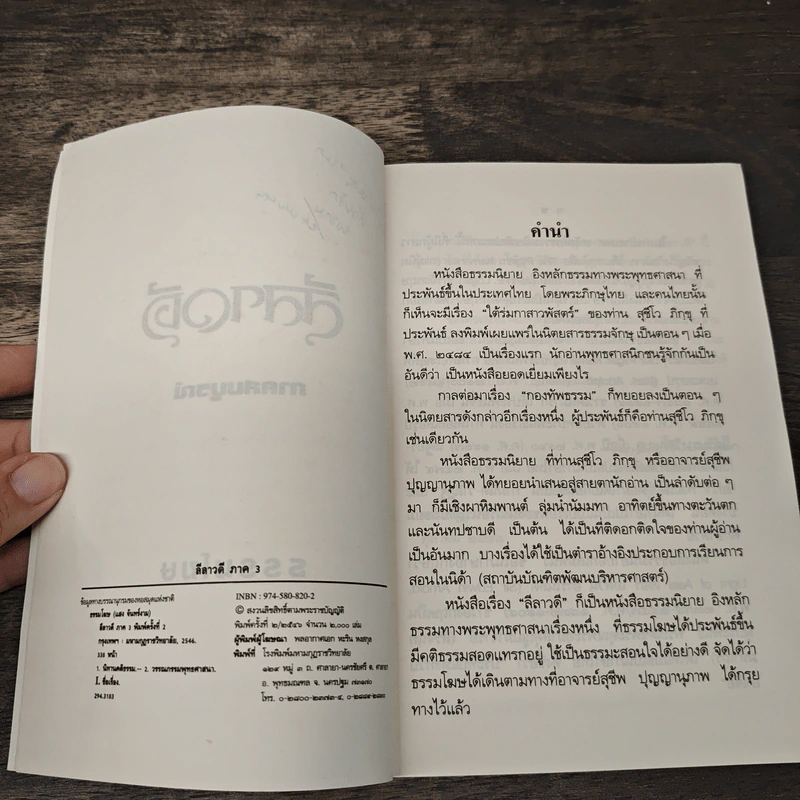 ลีลาวดี ภาค 3
ข้อมูลทางบรรณานุกรมของหอสมุดแห่งชาติ
ธรรมโฆษ (แสง จันทร์งาม)
ลีลาวดี ภาค 3 พิมพ์ครั้งที่ 2
กรุงเทพฯ : มหามกุฏราชวิทยาลัย, 2546.
330 หน้า
1. นิทานคติธรรม.- 2. วรรณกรรมพุทธศาสนา.
I. ชื่อเรื่อง.
294.3183
INBN : 974-580-820-2
© สงวนลิขสิทธิ์ตามพระราชบัญญัติ
พิมพ์ครั้งที่ ๒/๒๕๔๖ จำนวน ๒,๐๐๐ เล่ม
ผู้พิมพ์ผู้โฆษณา พลอากาศเอก หะริน หงสกุล
พิมพ์ที่ โรงพิมพ์มหามกุฏราชวิทยาลัย
๑๒๙ หมู่ ๓ ถ. ศาลายา-นครชัยศรี ต. ศาลายา
อ. พุทธมณฑล จ. นครปฐม ๗๓๑๗๐
โทร. ๐-๒๘๐๐-๒๓๗๓-๔,
คำนำ
หนังสือธรรมนิยาย อิงหลักธรรมทางพระพุทธศาสนา ที่
ประพันธ์ขึ้นในประเทศไทย โดยพระภิกษุไทย และคนไทยนั้น
ก็เห็นจะมีเรื่อง “ใต้ร่มกาสาวพัสตร์” ของท่าน สุชีโว ภิกขุ ที่
ประพันธ์ ลงพิมพ์เผยแพร่ในนิตยสารธรรมจักษุ เป็นตอน ๆ เมื่อ
พ.ศ. ๒๔๘๔ เป็นเรื่องแรก นักอ่านพุทธศาสนิกชนรู้จักกันเป็น
อันดีว่า เป็นหนังสือยอดเยี่ยมเพียงไร
กาลต่อมาเรื่อง “กองทัพธรรม” ก็ทยอยลงเป็นตอน ๆ
ในนิตยสารดังกล่าวอีกเรื่องหนึ่ง ผู้ประพันธ์ก็คือท่านสุชีโว ภิกขุ
เช่นเดียวกัน
หนังสือธรรมนิยาย ที่ท่านสุชีโว ภิกขุ หรืออาจารย์สุชีพ
ปุญญานุภาพ ได้ทยอยนำเสนอสู่สายตานักอ่าน เป็นลำดับต่อ ๆ
มา ก็มีเชิงผาหิมพานต์ ลุ่มน้ำนัมมทา อาทิตย์ขึ้นทางตะวันตก
และนันทปชาบดี เป็นต้น ได้เป็นที่ติดอกติดใจของท่านผู้อ่าน
เป็นอันมาก บางเรื่องได้ใช้เป็นตำราอ้างอิงประกอบการเรียนการ
สอนในนิด้า (สถาบันบัณฑิตพัฒนบริหารศาสตร์)
หนังสือเรื่อง “ลีลาวดี” ก็เป็นหนังสือธรรมนิยาย อิงหลัก
ธรรมทางพระพุทธศาสนาเรื่องหนึ่ง ที่ธรรมโฆษได้ประพันธ์ขึ้น
มีคติธรรมสอดแทรกอยู่ ใช้เป็นธรรมะสอนใจได้อย่างดี จัดได้ว่า
ธรรมโฆษได้เดินตามทางที่อาจารย์สุชีพ ปุญญานุภาพ ได้กรุย
ทางไว้แล้ว